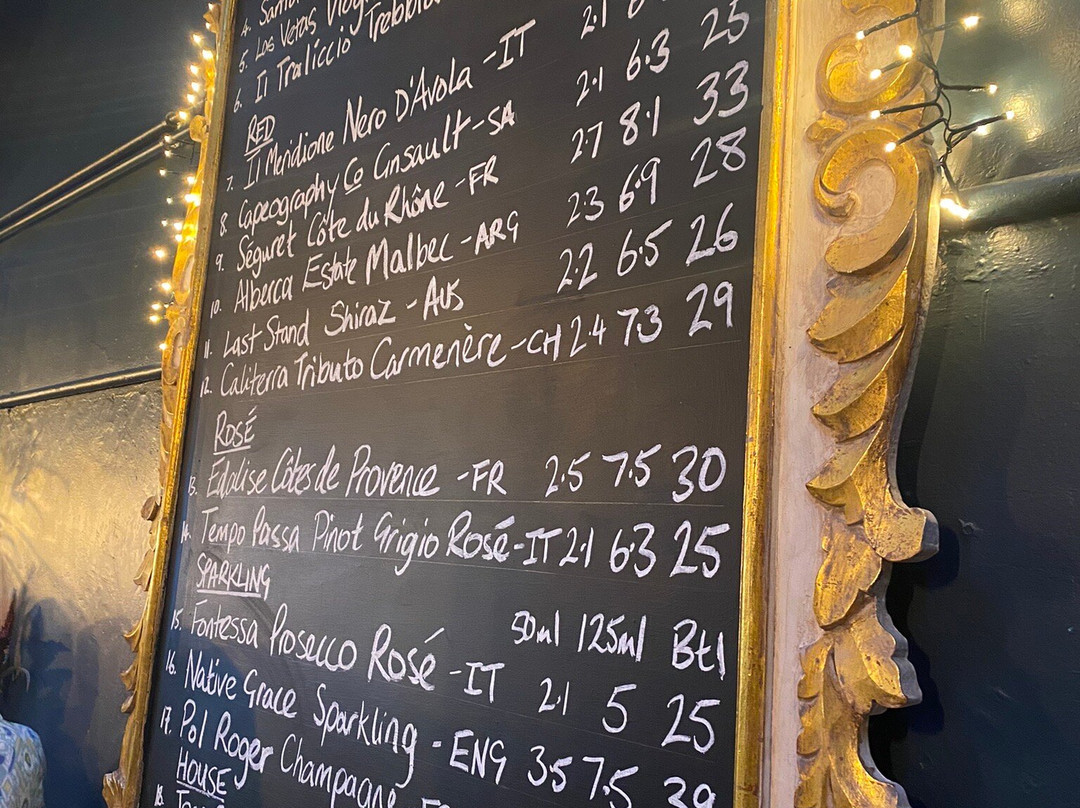 5. Las Veras
6. Il Traliccio Trebbia
RED
7. Il Meridione Nero D'Avola - IT 2.1
8. Capeography Co Cinsault - SA 2.1 6.3 25
9. Séguret Côte du Rhône - FR 2.7 8.1 33
10. Alberca Estate Malbec - ARG 2.3 6.9 28
11. Last Stand Shiraz - Aus 2.2 6.5 26
12. Caliterra Tributo Carmenère - CH 2.4 7.3 29
ROSÉ
13. Edalise Côtes de Provence - FR 2.5 7.5 30
14. Tempo Passa Pinot Grigio Rosé - IT 2.1 6.3 25
SPARKLING
50ml 125ml Btl
15. Fontessa Prosecco Rosé - IT 2.1 5 25
16. Native Grace Sparkling - ENG 3.5 7.5 39
17. Pol Roger Champagne
HOUSE
18.